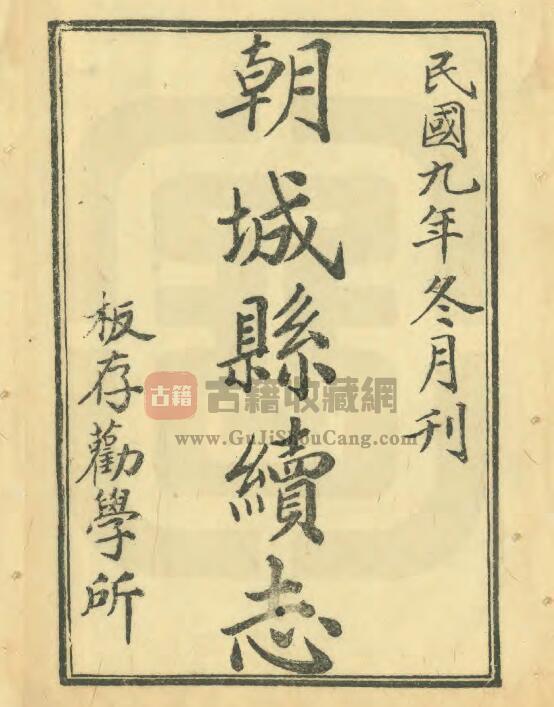 民國九年冬月刊
朝城縣續志
板存勸學所
古籍
古籍收藏網
www.GuJiShouCang.com